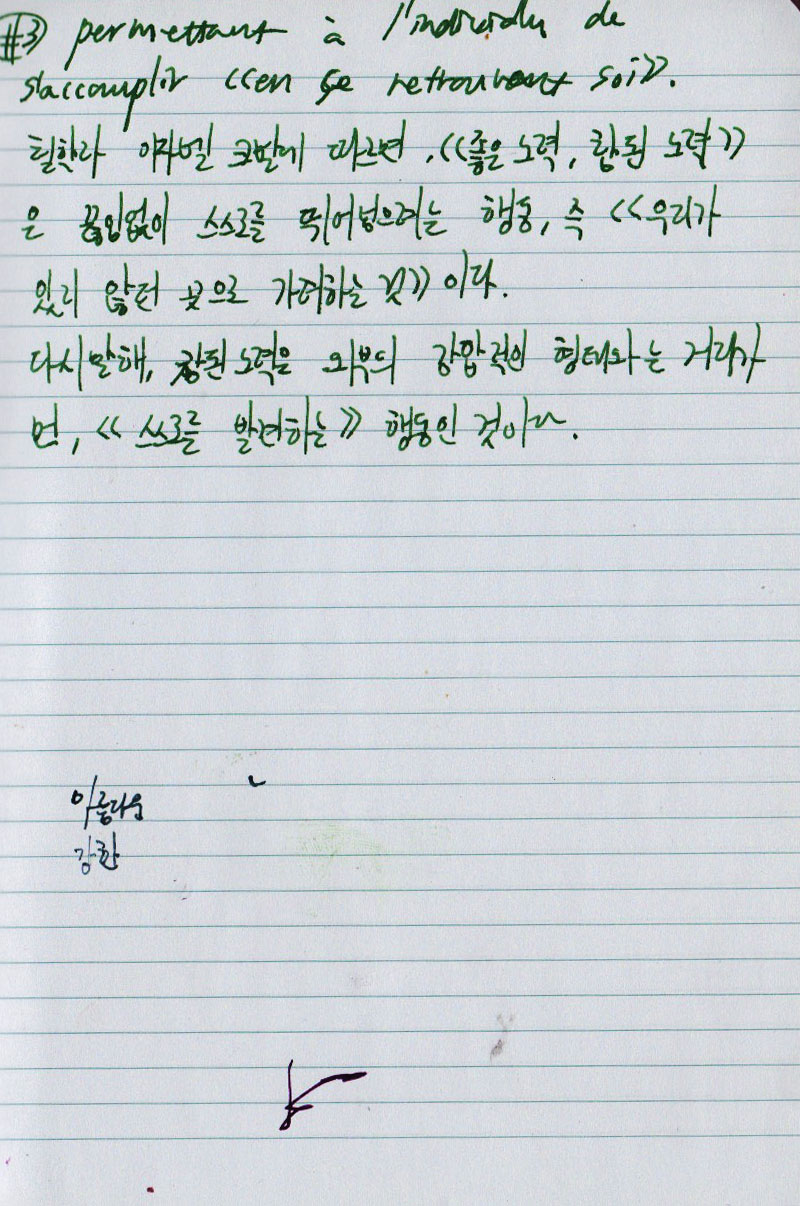 #3) permettant à l'individu de
s'accomplir <<en se retrouvant soi>>.
철학자 이자벨 코발에 따르면, <<좋은 노력, 참된 노력>>
은 끊임없이 스스로를 뛰어넘으려는 행동, 즉 <<우리가
있지 않던 곳으로 가려하는 것>>이다.
다시말해, 참된 노력은 외부의 강압적인 형태와는 거리가
먼, <<스스로를 발견하는>> 행동인 것이다.
아름다운